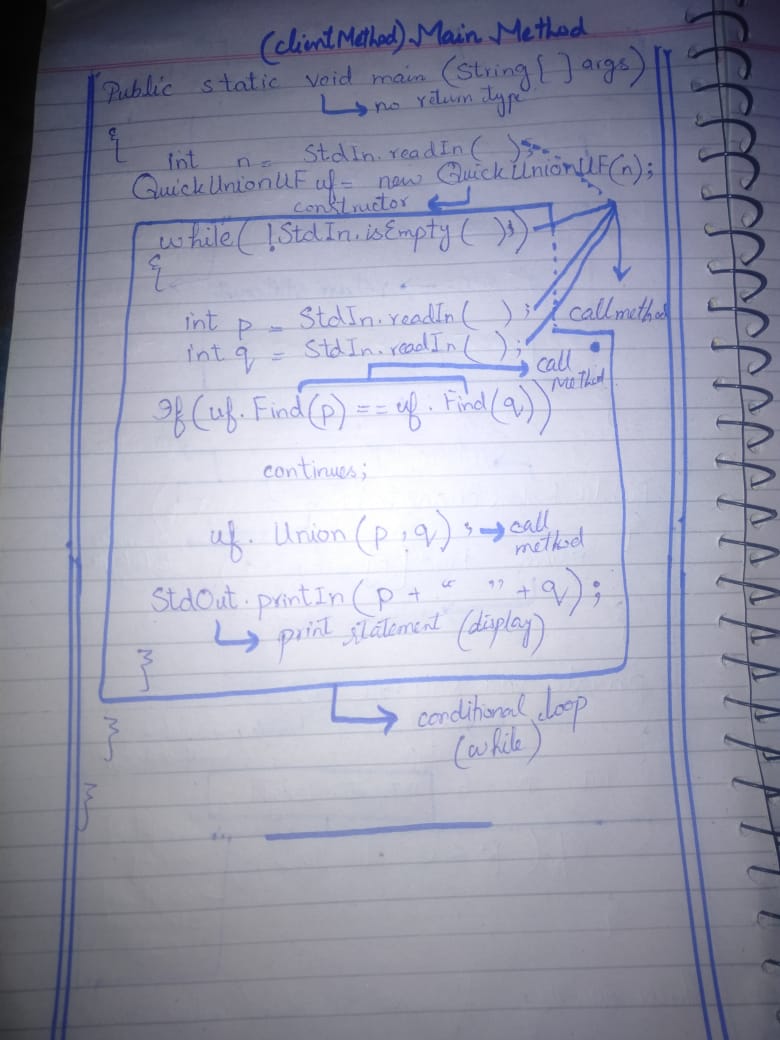 (client Method) Main Method
Public static void main (String [ ] args)
no return type
{
int n = StdIn.readIn( );
QuickUnionUF uf = new QuickUnionUF(n);
constructor
while( !StdIn.isEmpty( );)
{
int p = StdIn.readIn( );
call method
int q = StdIn.readIn( );
call
Method
If (uf. Find(p) == uf. Find(q))
continues;
uf. Union (p , q) ; call
method
StdOut.printIn( p + “ ” + q);
print statement (display)
}
conditional loop
(while)
}
}